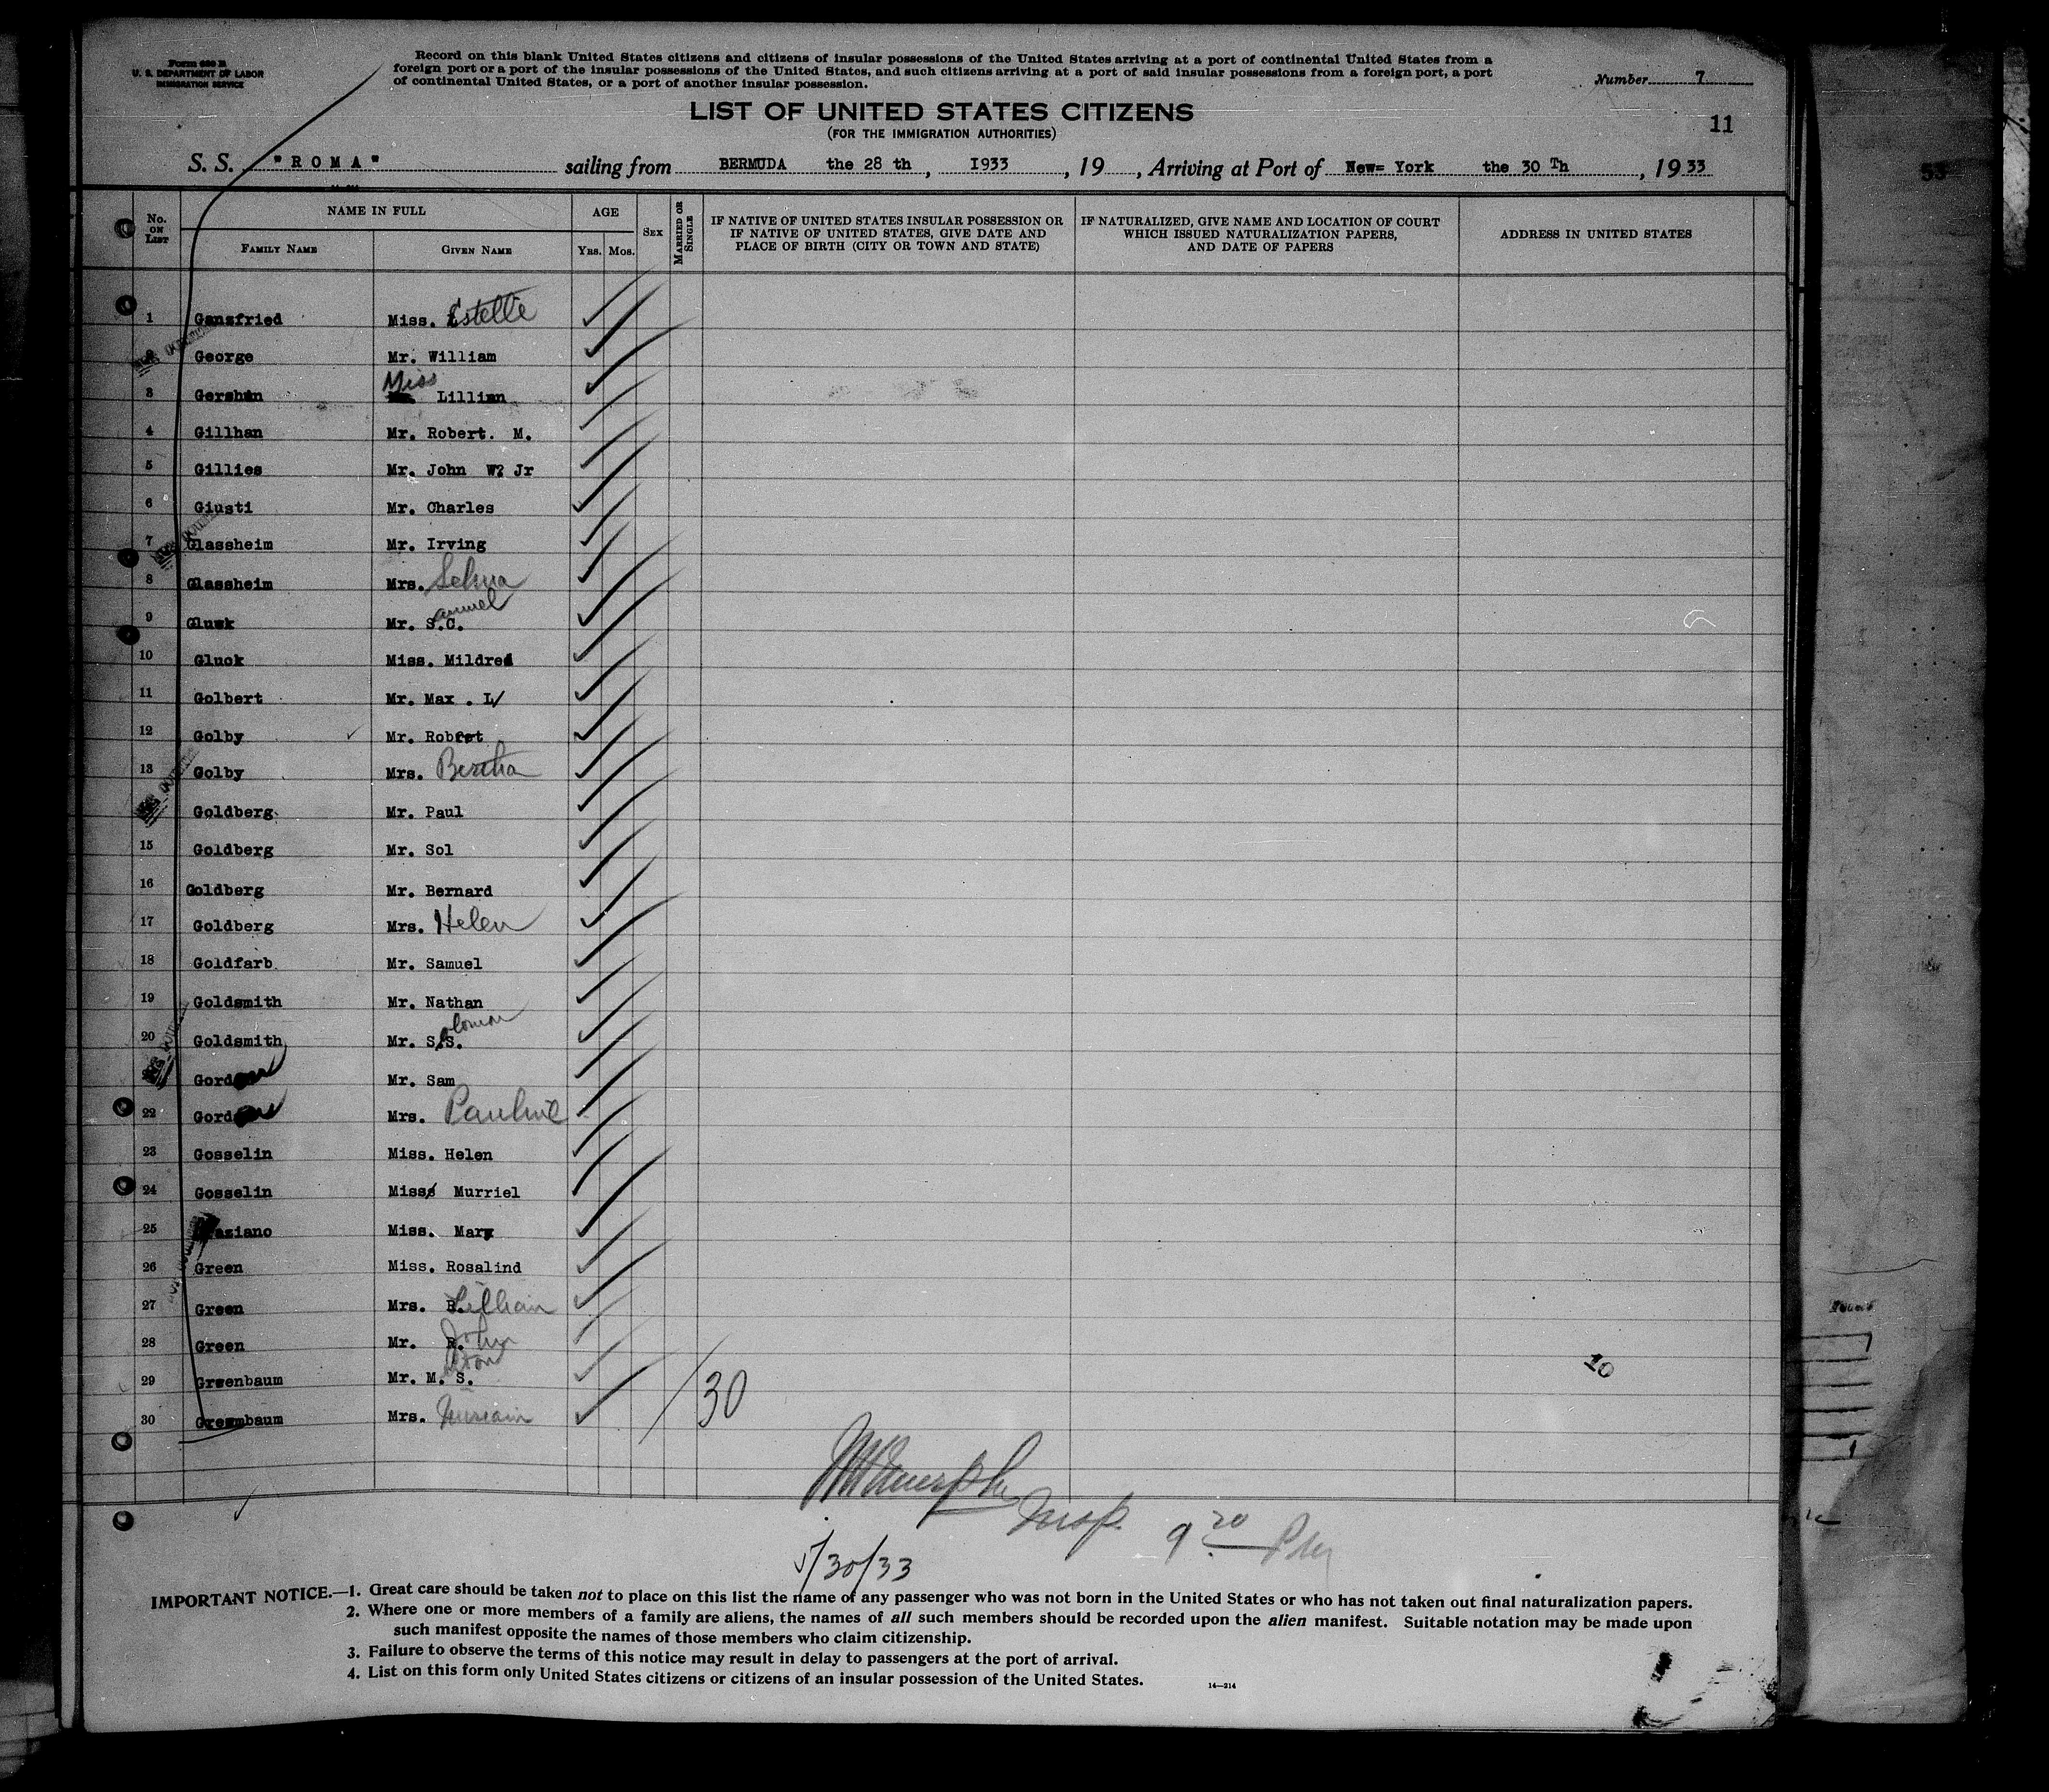 Form 630 B
U. S. DEPARTMENT OF LABOR
IMMIGRATION SERVICE
Record on this blank United States citizens and citizens of insular possessions of the United States arriving at a port of continental United States from a
foreign port or a port of the insular possessions of the United States, and such citizens arriving at a port of said insular possessions from a foreign port, a port
of continental United States, or a port of another insular possession.
Number 7
LIST OF UNITED STATES CITIZENS
(FOR THE IMMIGRATION AUTHORITIES)
11
S. S. "ROMA" sailing from BERMUDA the 28 th, I933, 19 , Arriving at Port of New= York the 30 Th, 19 33
No. ON LIST
NAME IN FULL
FAMILY NAME
GIVEN NAME
AGE
YRS. MOS.
SEX
MARRIED OR SINGLE
IF NATIVE OF UNITED STATES INSULAR POSSESSION OR
IF NATIVE OF UNITED STATES, GIVE DATE AND
PLACE OF BIRTH (CITY OR TOWN AND STATE)
IF NATURALIZED, GIVE NAME AND LOCATION OF COURT
WHICH ISSUED NATURALIZATION PAPERS,
AND DATE OF PAPERS
ADDRESS IN UNITED STATES
1 Gansfried Miss. Estelle
George Mr. William
3 Gershon Miss Lillian
4 Gillhan Mr. Robert. M.
5 Gillies Mr. John W? Jr
6 Giusti Mr. Charles
7 Glassheim Mr. Irving
8 Glassheim Mrs. Selma
9 Gluck Mr. S.C. amuel
10 Gluck Miss. Mildred
11 Golbert Mr. Max . L
12 Golby Mr. Robert
13 Golby Mrs. Bertha
Goldberg Mr. Paul
15 Goldberg Mr. Sol
16 Goldberg Mr. Bernard
17 Goldberg Mrs. Helen
18 Goldfarb Mr. Samuel
19 Goldsmith Mr. Nathan
20 Goldsmith Mr. S.S. olomon
Gord Mr. Sam
22 Gord Mrs. Pauline
23 Gosselin Miss. Helen
24 Gosselin Miss Murriel
25 Graziano Miss. Mary
26 Green Miss. Rosalind
27 Green Mrs. R. Lillian
28 Green Mr. R. John
29 Greenbaum Mr. M. S.
30 Greenbaum Mrs. Miriam
30
10
Insp. 9 20 Pm
5/30/33
IMPORTANT NOTICE.—1. Great care should be taken not to place on this list the name of any passenger who was not born in the United States or who has not taken out final naturalization papers.
2. Where one or more members of a family are aliens, the names of all such members should be recorded upon the alien manifest. Suitable notation may be made upon
such manifest opposite the names of those members who claim citizenship.
3. Failure to observe the terms of this notice may result in delay to passengers at the port of arrival.
4. List on this form only United States citizens or citizens of an insular possession of the United States.
14—214